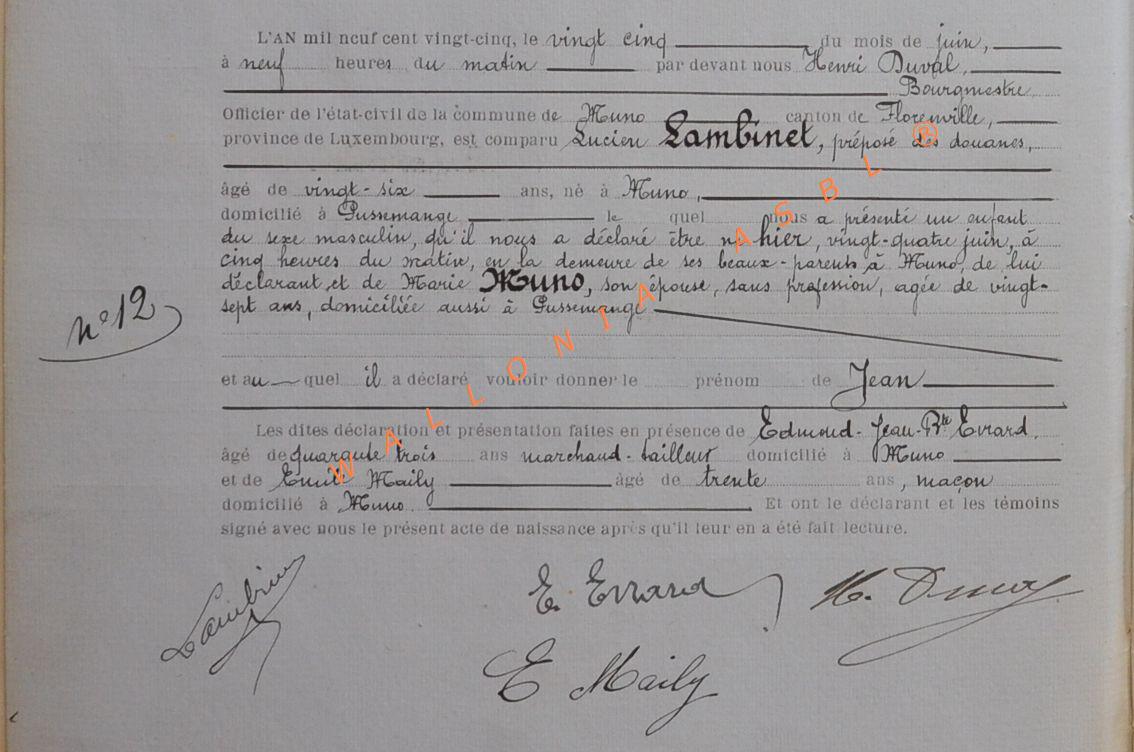 L'AN mil neuf cent vingt-cinq, le vingt cinq du mois de juin,
à neuf heures du matin par devant nous Henri Duval,
Bourgmestre
Officier de l'état-civil de la commune de Muno canton de Florenville,
province de Luxembourg, est comparu Lucien Lambinet, préposé des douanes,
âgé de vingt-six ans, né à Muno,
domicilié à Pussemange le quel nous a présenté un enfant
du sexe masculin, qu'il nous a déclaré être né hier, vingt-quatre juin, à
cinq heures du matin, en la demeure de ses beaux-parents à Muno, de lui
déclarant et de Marie Muno, son épouse, sans profession, agée de vingt-
sept ans, domiciliée aussi à Pussemange
n° 12
et au quel il a déclaré vouloir donner le prénom de Jean
Les dites déclaration et présentation faites en présence de Edmond-Jean-Bte Evrard.
âgé de quarante trois ans marchand-tailleur domicilié à Muno
et de Emile Maily âgé de trente ans, maçon
domicilié à Muno. Et ont le déclarant et les témoins
signé avec nous le présent acte de naissance après qu'il leur en a été fait lecture.
Lambinet
E. Evrard
H. Duval
E Maily
WALLONIA ASBL ®